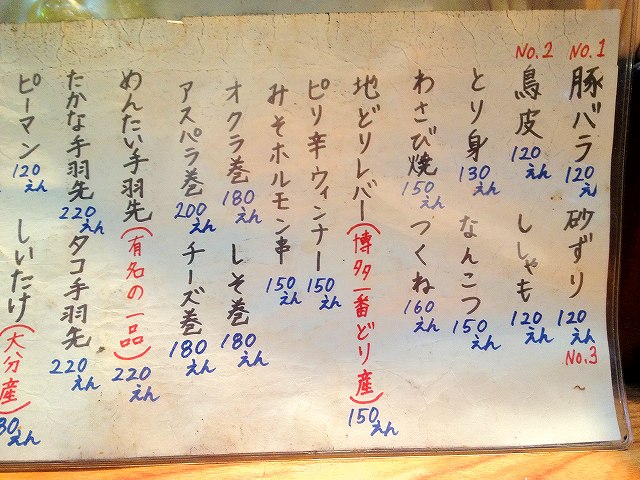 No.1
豚バラ 120えん 砂ずり 120えん
No.3
No.2
鳥皮 120えん ししゃも 120えん
とり身 130えん なんこつ 150えん
わさび焼 150えん つくね 160えん
地どりレバー(博多一番どり産) 150えん
ピリ辛ウィンナー 150えん
みそホルモン串 150えん
オクラ巻 180えん しそ巻 180えん
アスパラ巻 200えん チーズ巻 180えん
めんたい手羽先(有名の一品) 220えん
たかな手羽先 220えん タコ手羽先 220えん
ピーマン 120えん しいたけ(大分産) えん